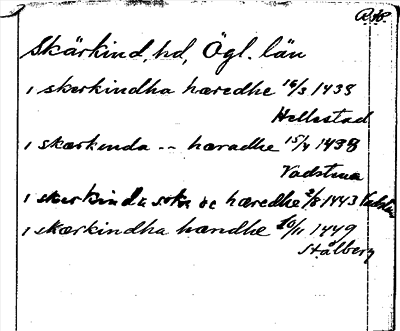 Skärkind, hd, Ögl. län
i skerkindha hæredhe 16/3 1438
Hellestad
i skærkinda -- hæradhe 15/4 1438
Vadstena
i skerkinda sokn oc hæredhe 2/8 1443
i skærkindha hærædhe 10/11 1449
Stålberg